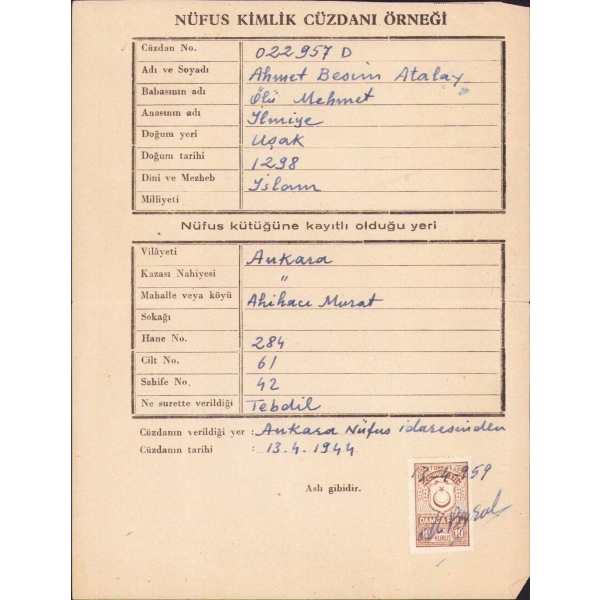 NÜFUS KİMLİK CÜZDANI ÖRNEĞİ
Cüzdan No. 022957 D
Adı ve Soyadı Ahmet Besim Atalay
Babasının adı Ölü Mehmet
Anasının adı İlmiye
Doğum yeri Uşak
Doğum tarihi 1298
Dini ve Mezheb İslam
Milliyeti
Nüfus kütüğüne kayıtlı olduğu yeri
Vilâyeti Ankara
Kazası Nahiyesi "
Mahalle veya köyü Ahihacı Murat
Sokağı
Hane No. 284
Cilt No. 61
Sahife No. 42
Ne surette verildiği Tebdil
Cüzdanın verildiği yer : Ankara Nüfus idaresinden
Cüzdanın tarihi : 13.4.1944
Aslı gibidir.
959
10
KURUŞ